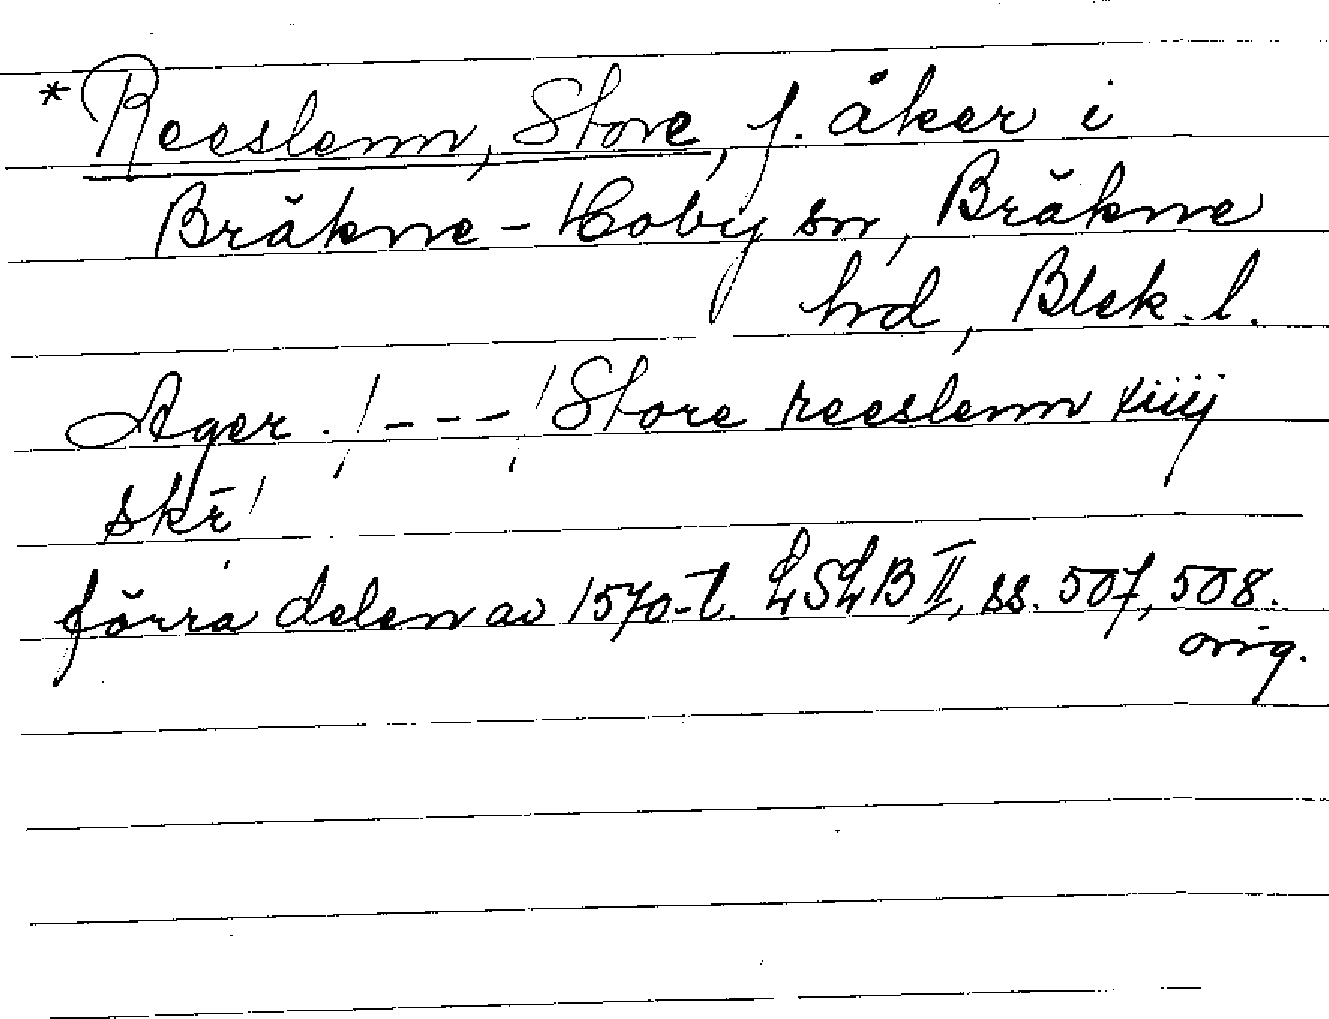 *Reeslenn, Store, f. åker i
Bräkne-Hoby sn, Bräkne
hd, Blek. l.
Ager. /---/ Store reeslenn xiiij
skr̄
förra delen av 1570-t. LSLB II, ss. 507, 508.
orig.